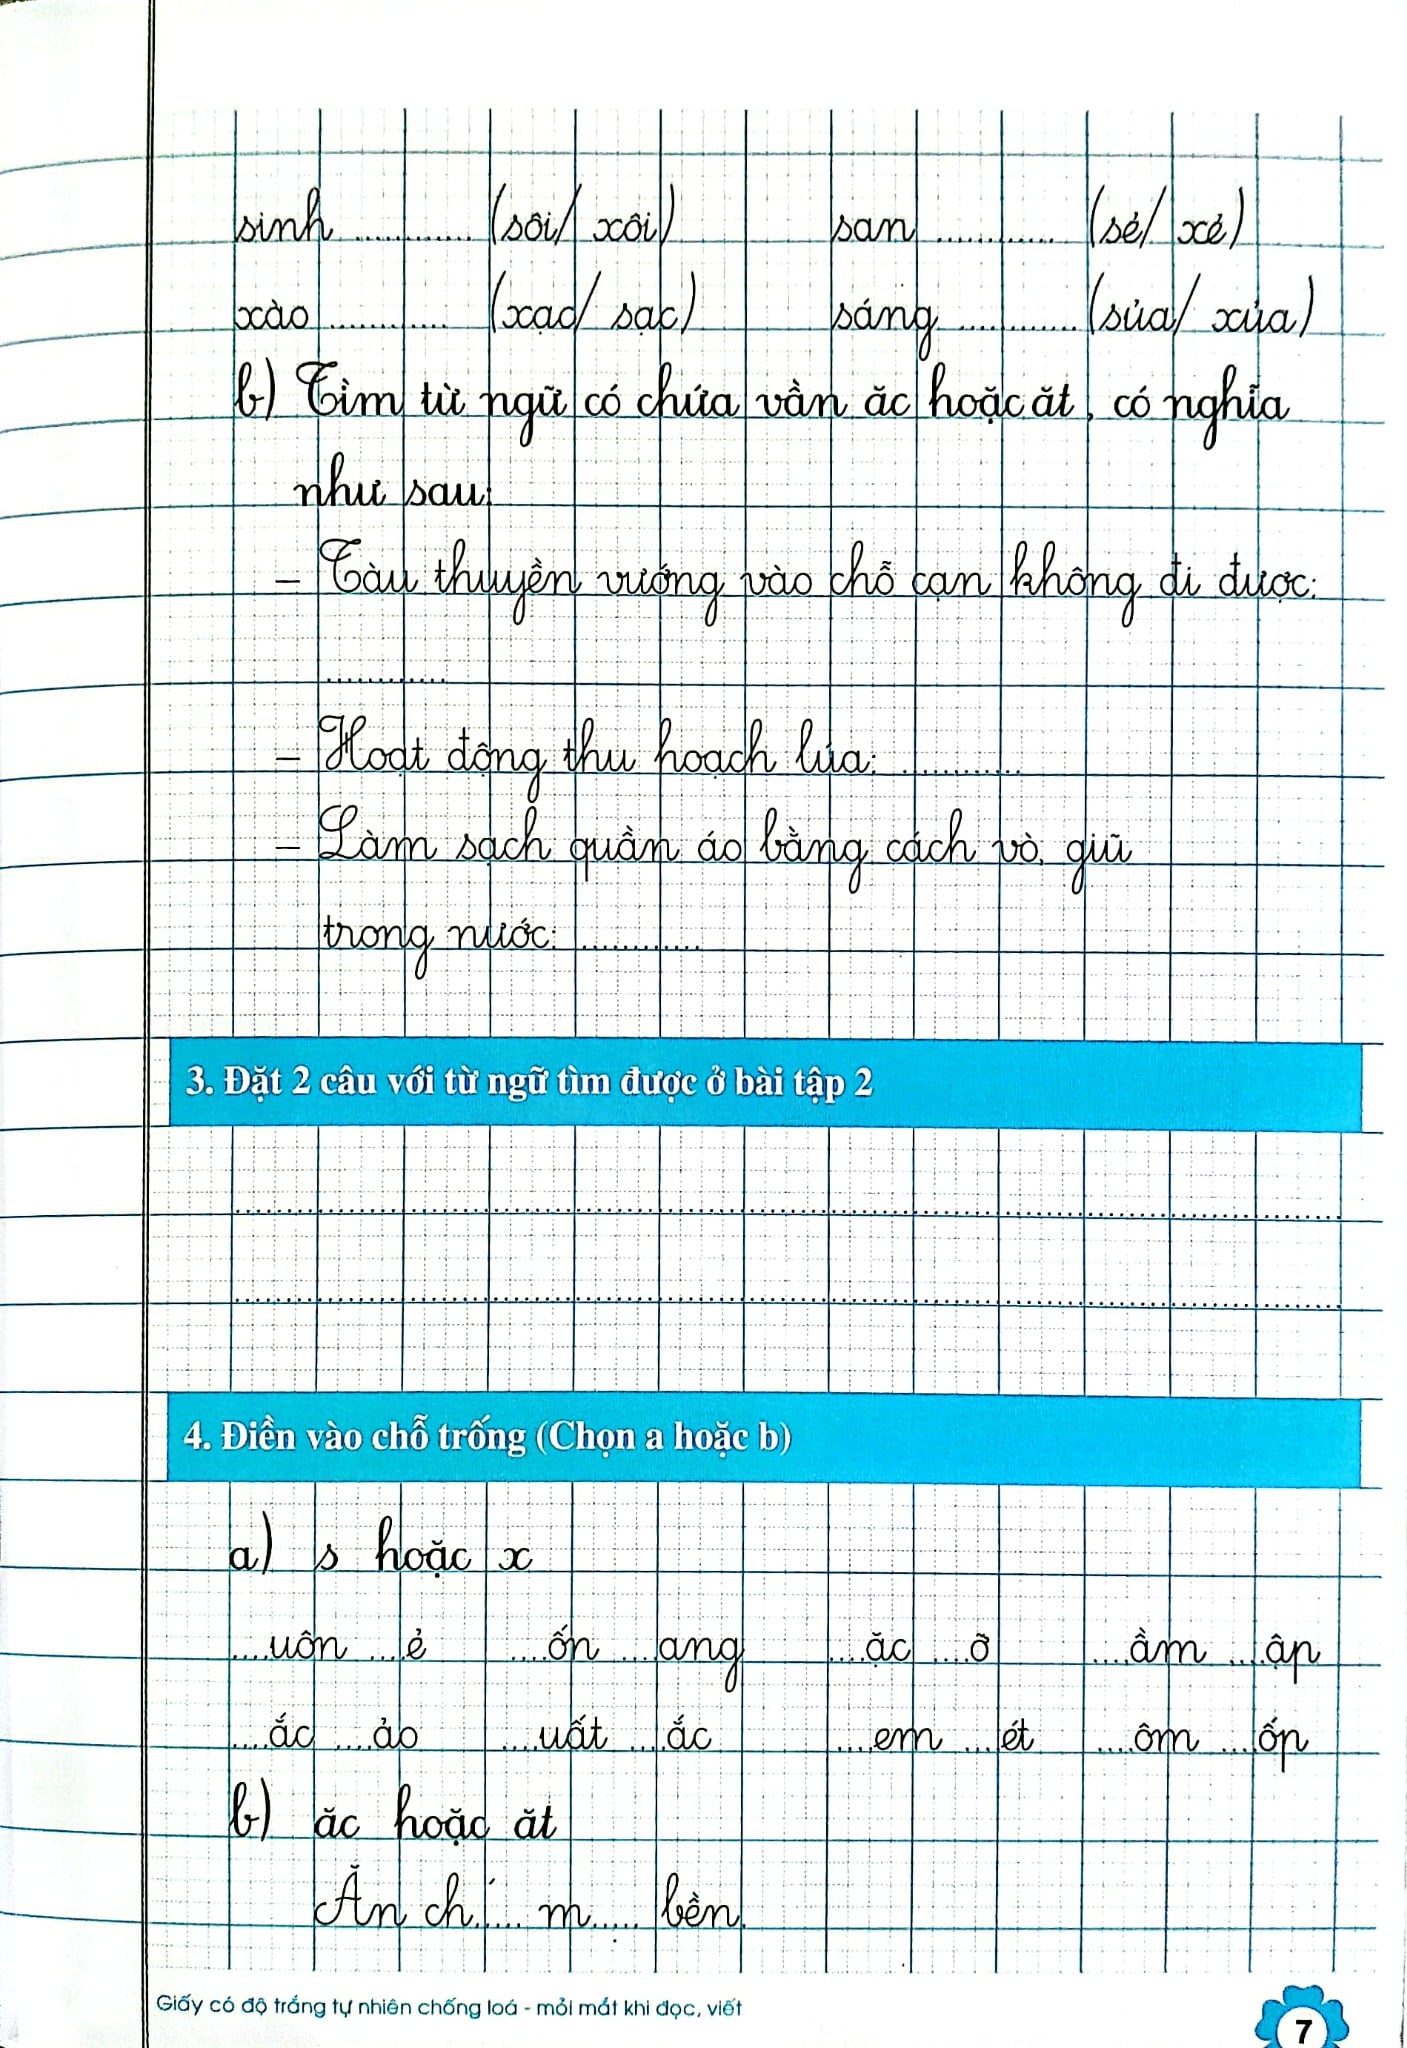 sinh ............ (sôi/ xôi) san ............ (sẻ/ xẻ)
xào ............ (xạc/ sạc) sáng ............ (sủa/ xủa)
b) Tìm từ ngữ có chứa vần ăc hoặc ăt, có nghĩa
như sau:
– Tàu thuyền vướng vào chỗ cạn không đi được:
............
– Hoạt động thu hoạch lúa: ............
– Làm sạch quần áo bằng cách vò, giũ
trong nước: ............
3. Đặt 2 câu với từ ngữ tìm được ở bài tập 2
4. Điền vào chỗ trống (Chọn a hoặc b)
a) s hoặc x
....uôn ....ẻ ....ốn ....ang ....ặc ....ỡ ....ầm ....ập
....ắc ....ảo ....uất ....ắc ....em ....ét ....ôm ....ốp
b) ăc hoặc ăt
Ăn ch..´... m..... bền.
Giấy có độ trắng tự nhiên chống loá - mỏi mắt khi đọc, viết
7